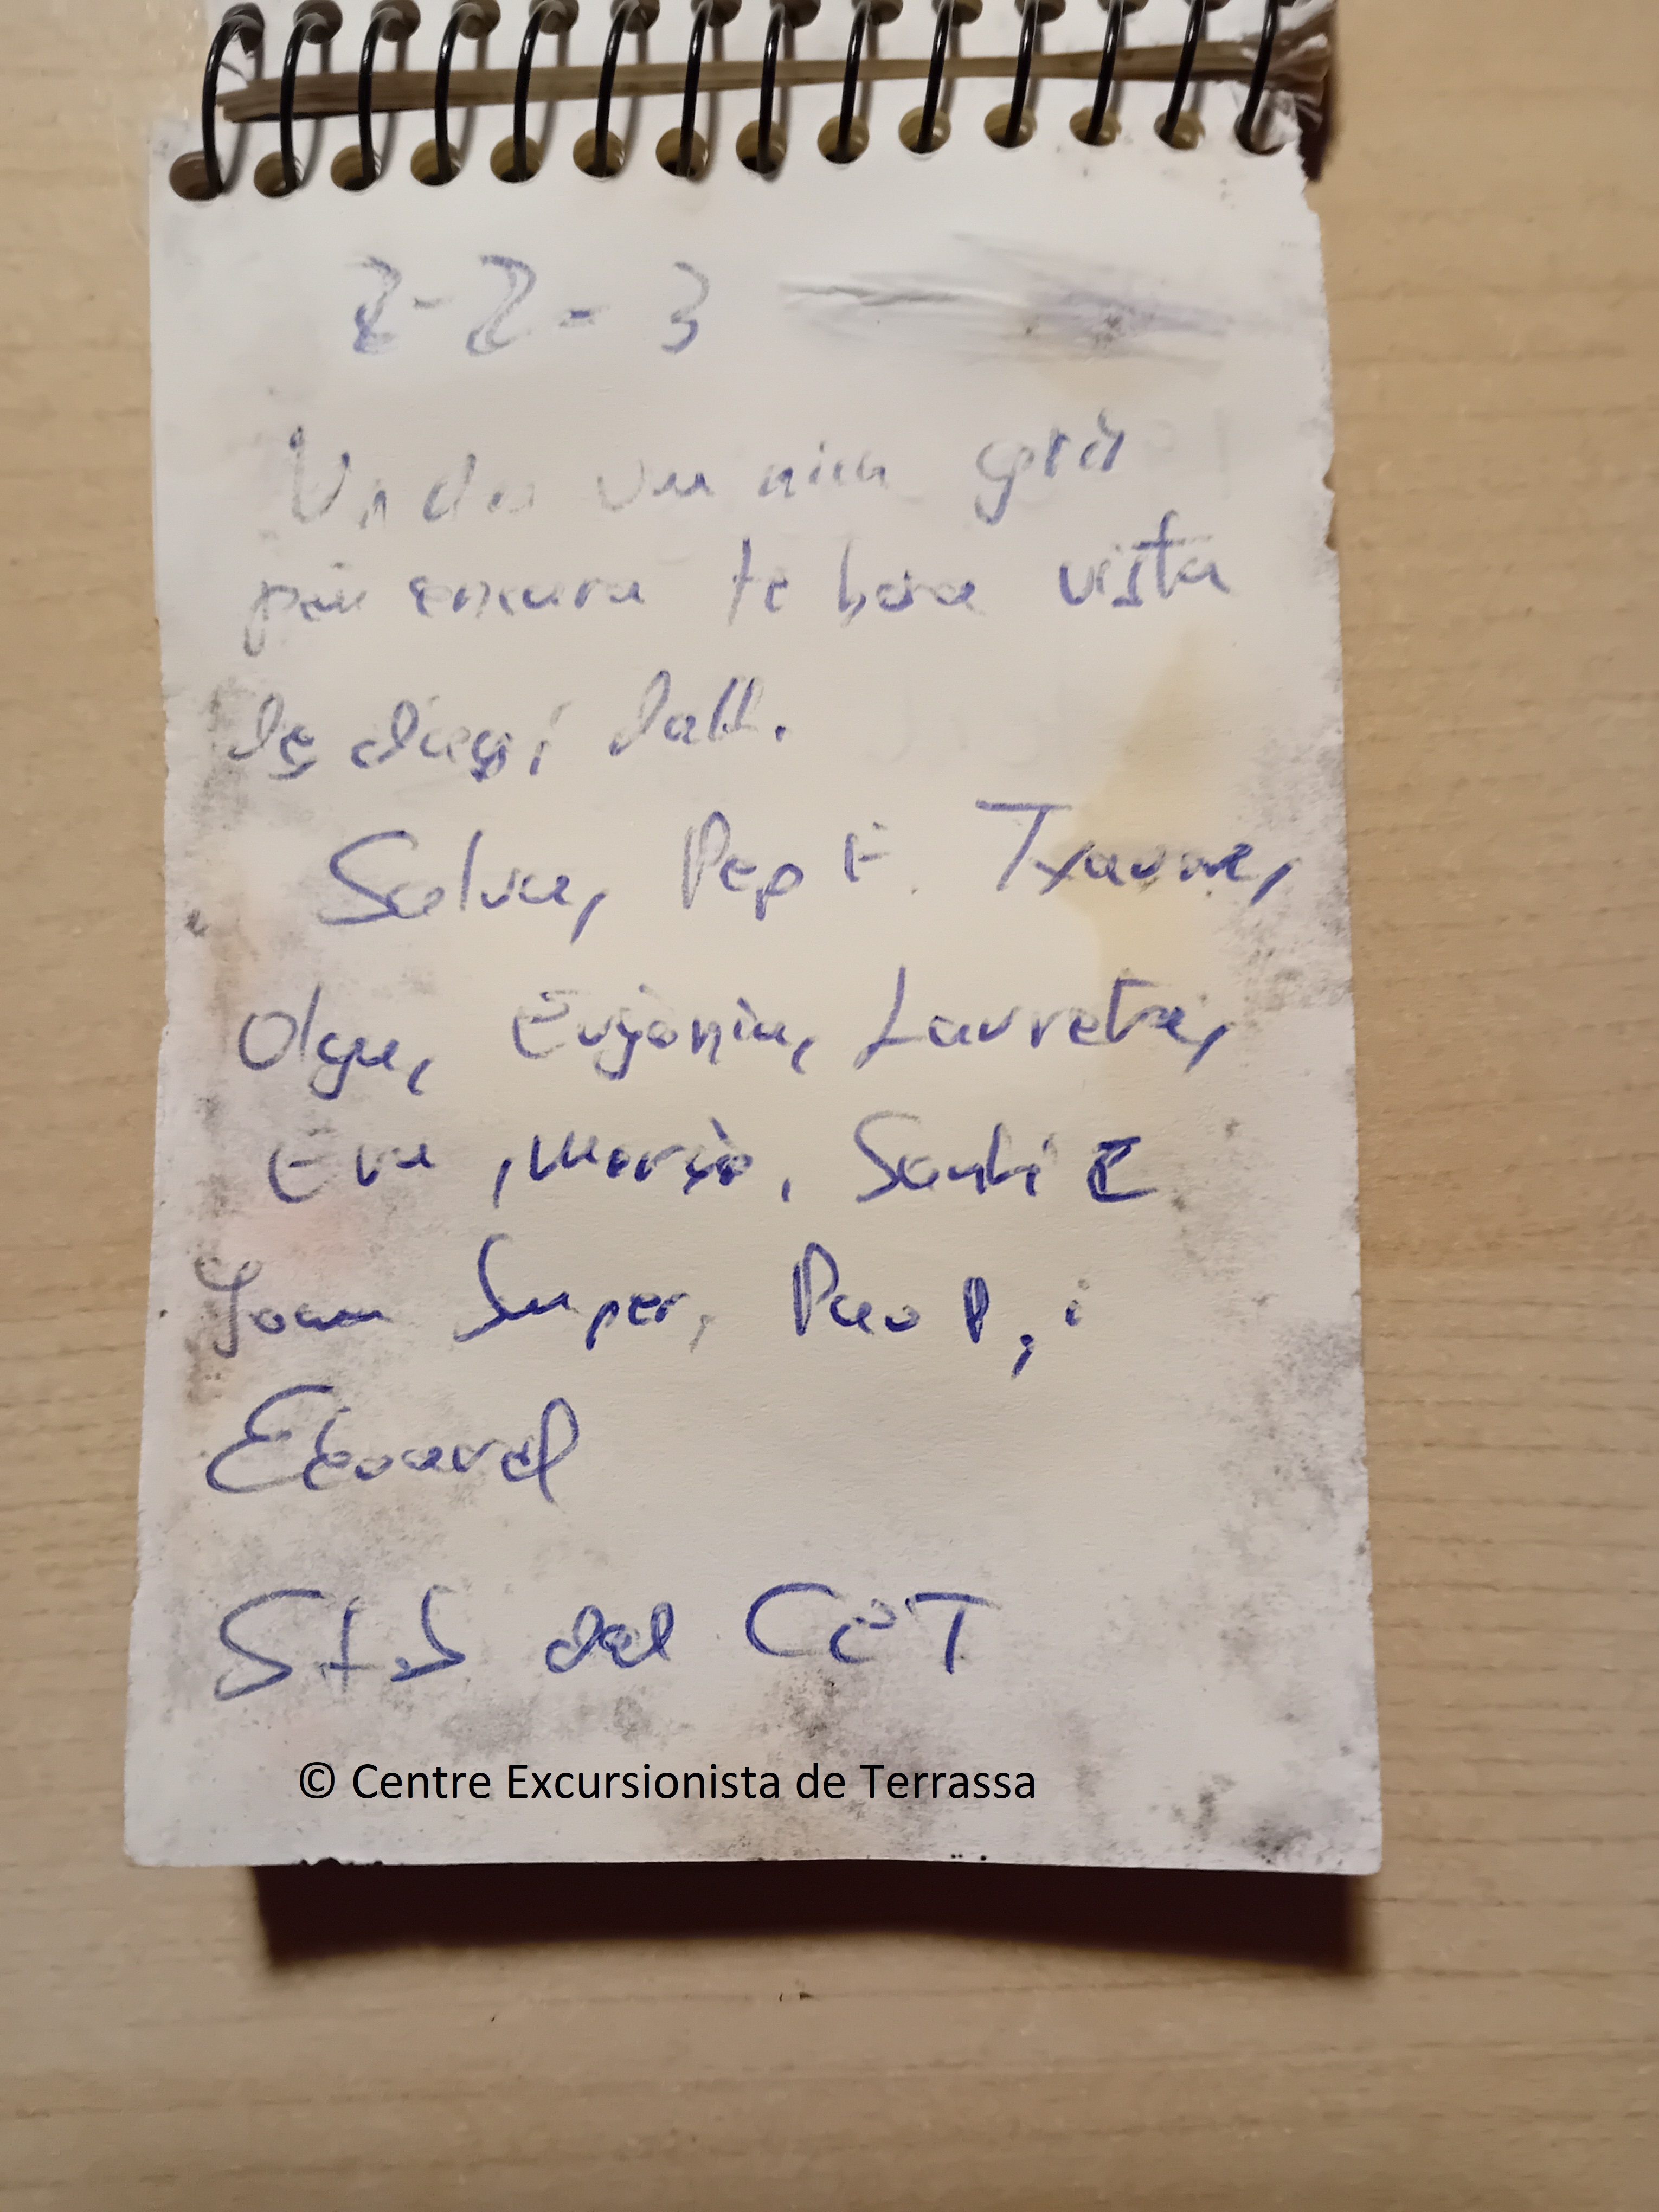 2-2-3
Un dia una mica gris
però encara te bona vista
desde aquí dalt.
Salva, Pep F. Txavone,
Olga, Eugènia, Laureta,
Eva, Maria, Santi E
Joan Super, Paco P, i
Eduard
StS del CET
© Centre Excursionista de Terrassa